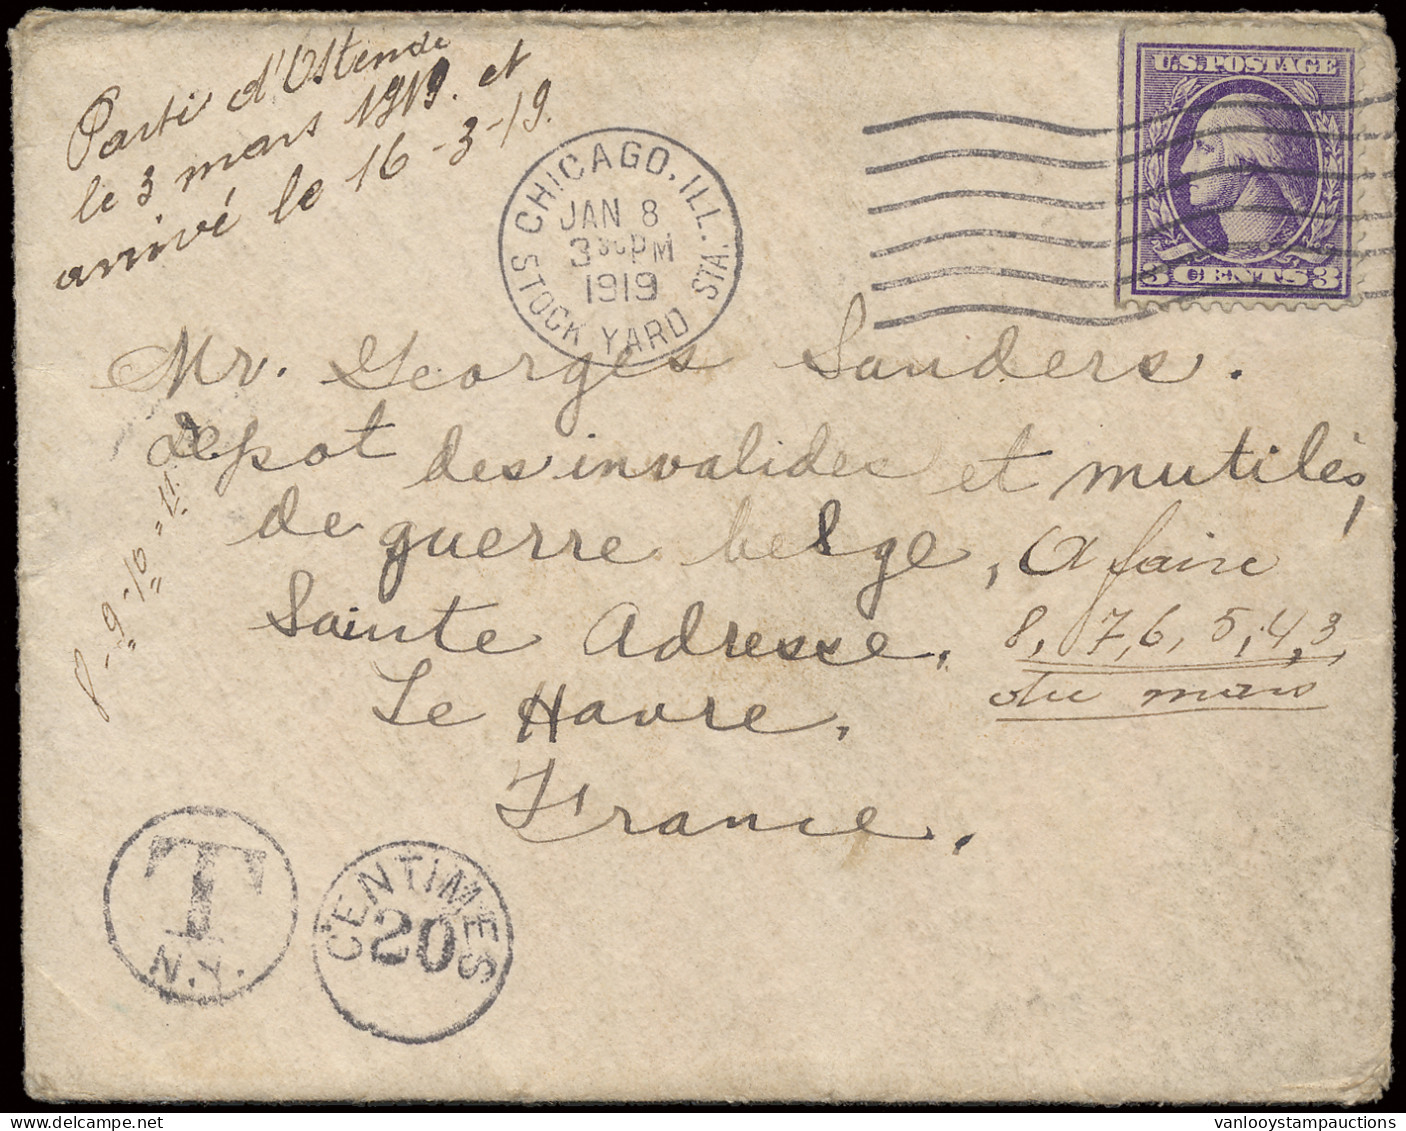 Parti d'Ostende
le 3 mars 1919. et
arrivé le 16-3-19.
CHICAGO, ILL.
JAN 8
3 30 PM
1919
STOCK YARD STA.
U.S. POSTAGE
3 CENTS 3
Mr. Georges Sanders.
depot des invalides et mutilés,
de guerre belge,
Sainte Adresse.
Le Havre.
France.
A faire
8, 7, 6, 5, 4, 3,
du mars
9-10-11
T
N.Y.
CENTIMES
20
vanlooystampauctions